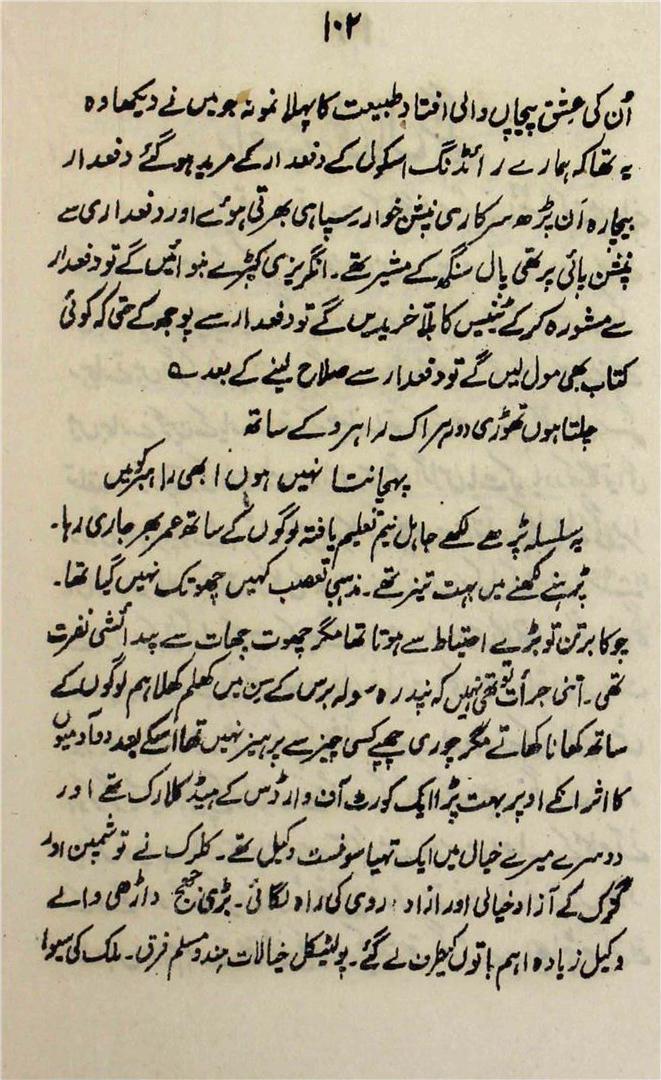 ۱۰۲
اُن کی عشق پیچاں والی افتادِ طبیعت کا پہلا نمونہ جو میں نے دیکھا وہ
یہ تھا کہ ہمارے رائڈنگ اسکول کے دفعدار کے مرید ہو گئے دفعدار
بیچارہ اَن پڑھ سرکاری پنشن خوار سپاہی بھرتی ہوئے اور دفعداری سے
پنشن پائی پرتھی پال سنگھ کے مشیر تھے۔ انگریزی کپڑے بنوائیں گے تو دفعدار
سے مشورہ کر کے ٹینس کا بلّا خریدیں گے تو دفعدار سے پوچھ کے حتیٰ کہ کوئی
کتاب بھی مول لیں گے تو دفعدار سے صلاح لینے کے بعد ؎
چلتا ہوں تھوڑی دور ہر اک راہرو کے ساتھ
پہچانتا نہیں ہوں ابھی راہبر کو میں
یہ سلسلہ پڑھے لکھے جاہل نیم تعلیم یافتہ لوگوں کے ساتھ عمر بھر جاری رہا۔
پڑہنے لکھنے میں بہت تیز تھے۔ مذہبی تعصب کہیں چھو تک نہیں گیا تھا۔
چوکا برتن تو بڑے احتیاط سے ہوتا تھا مگر چھوت چھات سے پیدائشی نفرت
تھی۔ اتنی جرأت تو تھی نہیں کہ پندرہ سولہ برس کے سن میں کھلم کھلا ہم لوگوں کے
ساتھ کھانا کھاتے مگر چوری چھپے کسی چیز سے پرہیز نہیں تھا اسکے بعد دو آدمیوں
کا اثر انکے اوپر بہت پڑا ایک کورٹ آف وارڈس کے ہیڈ کلارک تھے اور
دوسرے میرے خیال میں ایک تھیاسوفسٹ وکیل تھے۔ کلرک نے تو شمپین اور
گزک کے آزاد خیالی اور ازاد روی کی راہ لگائی۔ بڑی داڑھی والے
وکیل زیادہ اہم باتوں کیطرف لے گئے۔ پولٹیکل خیالات ہندو مسلم فرق۔ ملک کی سیوا